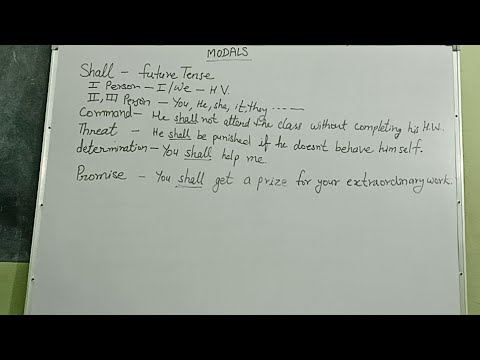 MODALS
Shall - future Tense
I Person - I/We - H.V.
II, III Person - You, He, she, it, they ------
Command - He shall not attend the class without completing his H.W.
Threat - He shall be punished if he doesn't behave himself.
determination - You shall help me
Promise - You shall get a prize for your extraordinary work.